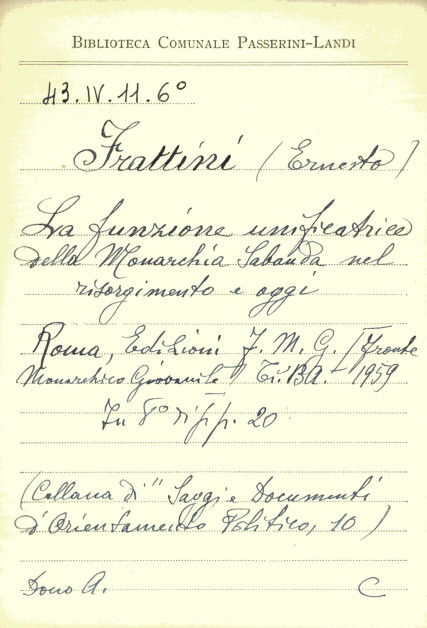 BIBLIOTECA COMUNALE PASSERINI-LANDI
43.IV.11.6°
Frattini (Ernesto)
La funzione unificatrice
della Monarchia Sabauda nel
risorgimento e oggi
Roma, Edizioni F. M. G. (Fronte
Monarchico Giovanile) Ti. BA. 1959
In 8° di pp. 20
(Collana di "Saggi e Documenti
d'Orientamento Politico, 10)
Dono A. C